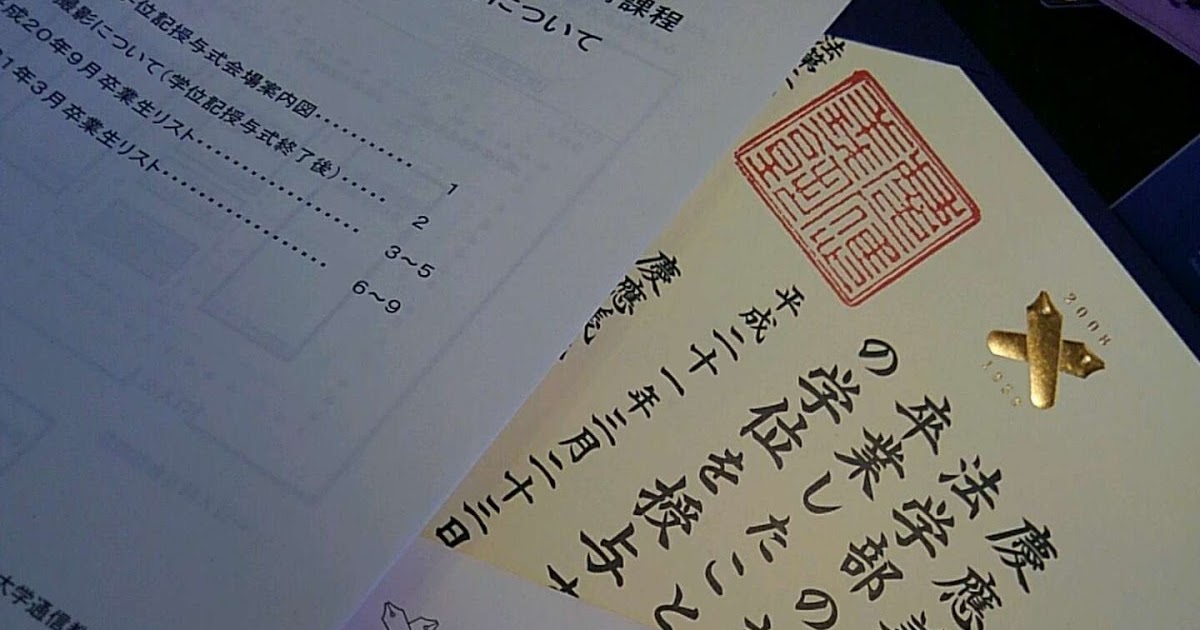 課程
について
位記授与式会場案内図……… 1
撮影について(学位記授与式終了後)…… 2
平成20年9月卒業生リスト……… 3~5
1年3月卒業生リスト……… 6~9
大学通信教
2008
慶應
法学部の
卒業したこと
の学位を授与
平成二十一年三月二十三日
慶應義
法第